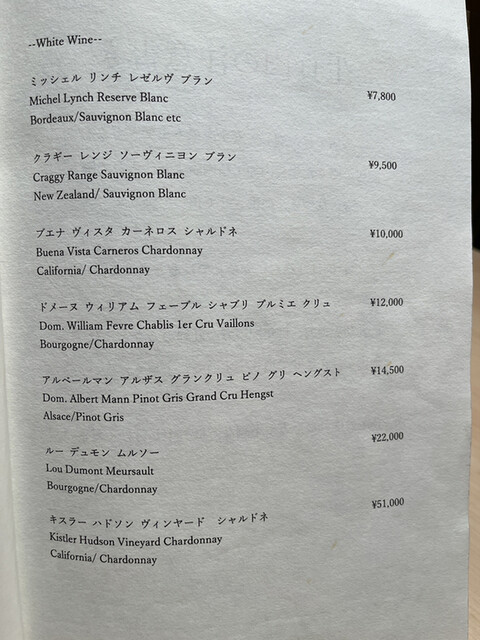 --White Wine--
ミッシェル リンチ レゼルヴ ブラン
Michel Lynch Reserve Blanc ¥7,800
Bordeaux/Sauvignon Blanc etc
クラギー レンジ ソーヴィニヨン ブラン
Craggy Range Sauvignon Blanc ¥9,500
New Zealand/ Sauvignon Blanc
ブエナ ヴィスタ カーネロス シャルドネ ¥10,000
Buena Vista Carneros Chardonnay
California/ Chardonnay
ドメーヌ ウィリアム フェーブル シャブリ プルミエ クリュ ¥12,000
Dom. William Fevre Chablis 1er Cru Vaillons
Bourgogne/Chardonnay
アルベールマン アルザス グランクリュ ピノ グリ ヘングスト ¥14,500
Dom. Albert Mann Pinot Gris Grand Cru Hengst
Alsace/Pinot Gris
ルー デュモン ムルソー ¥22,000
Lou Dumont Meursault
Bourgogne/Chardonnay
キスラー ハドソン ヴィンヤード シャルドネ ¥51,000
Kistler Hudson Vineyard Chardonnay
California/ Chardonnay